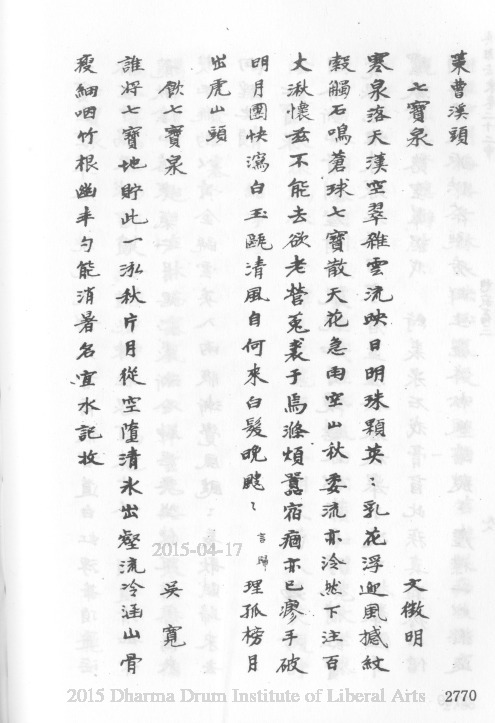 策曹溪頭
七寶泉 文徵明
寒泉落天漢空翠雜雲流映日明珠顆英〻乳花浮迎風撼紋
縠觸石鳴蒼球七寶散天花急雨空山秋委流亦泠然下注百
丈湫懷茲不能去欲老營菟裘于焉滌煩囂宿痼亦已瘳手破
明月團快瀉白玉甌清風自何來白髮晚颼〻言歸理孤榜月
出虎山頭
飲七寶泉 吳寬
誰將七寶地貯此一泓秋片月從空墮清氷出壑流冷涵山骨
瘦細咽竹根幽半勺能消暑名宜水記收
2015-04-17
2015 Dharma Drum Institute of Liberal Arts
2770